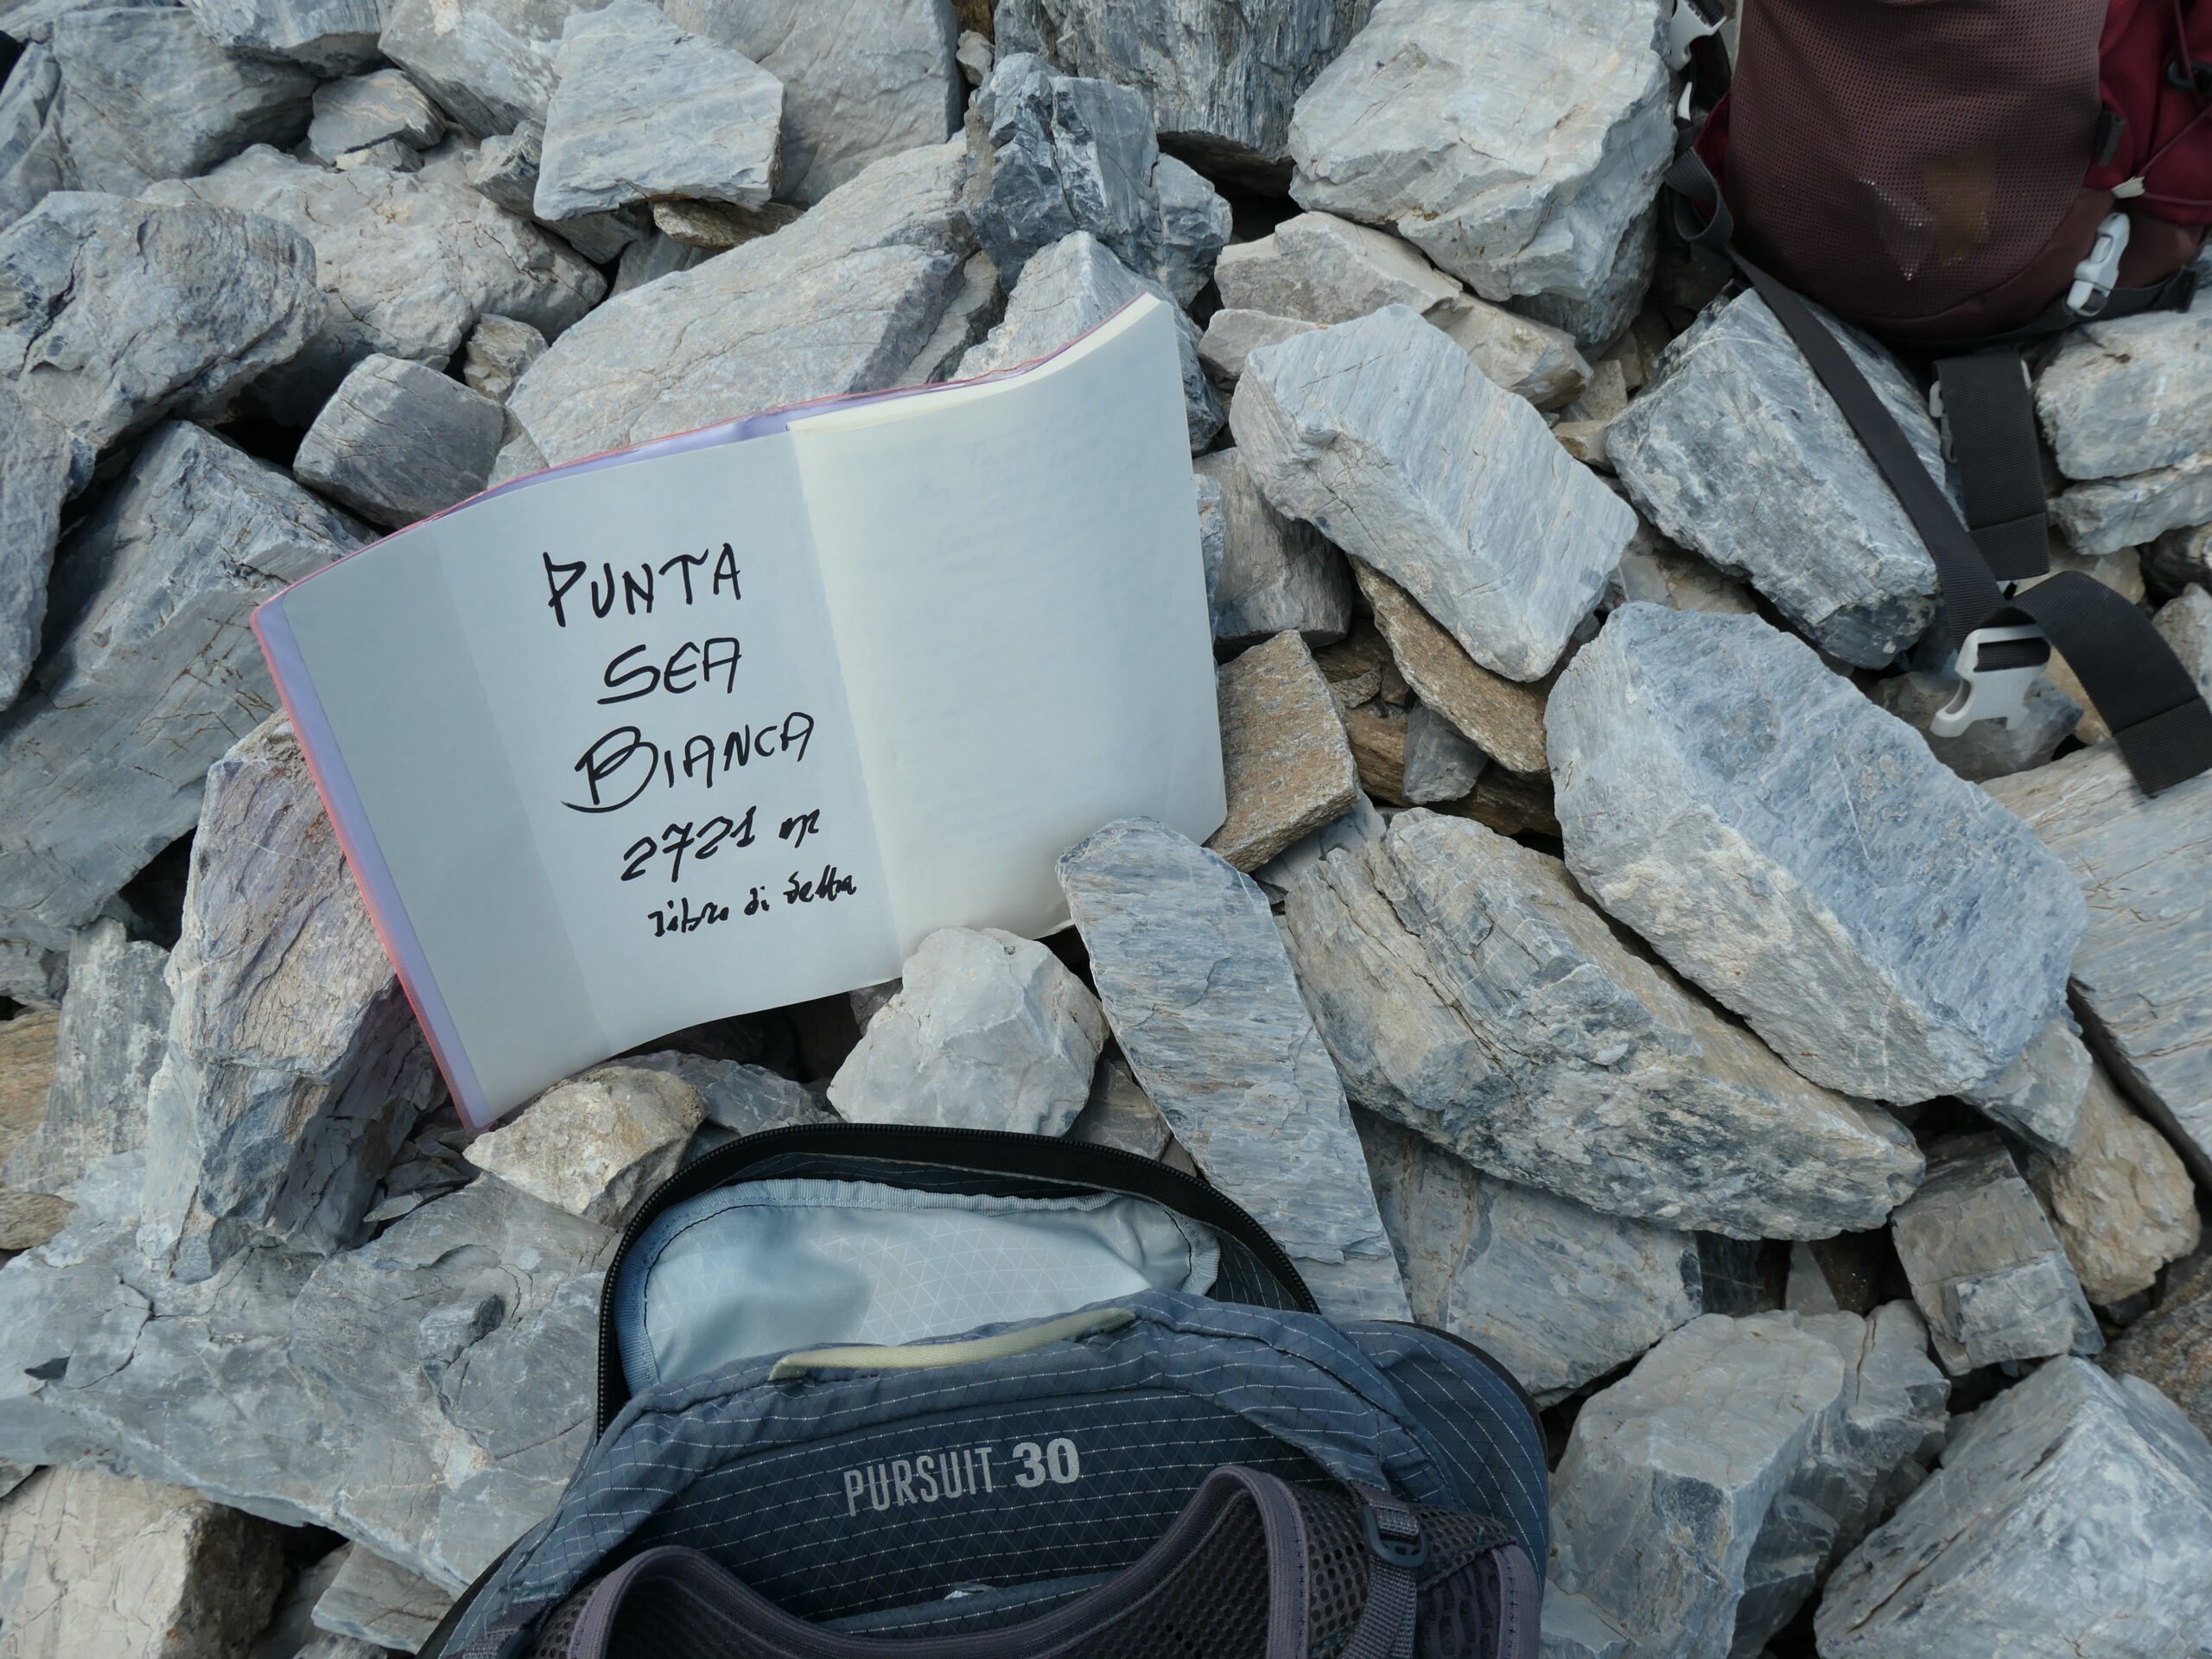 PUNTA
SEA
BIANCA
2721 m
libro di vetta
PURSUIT 30